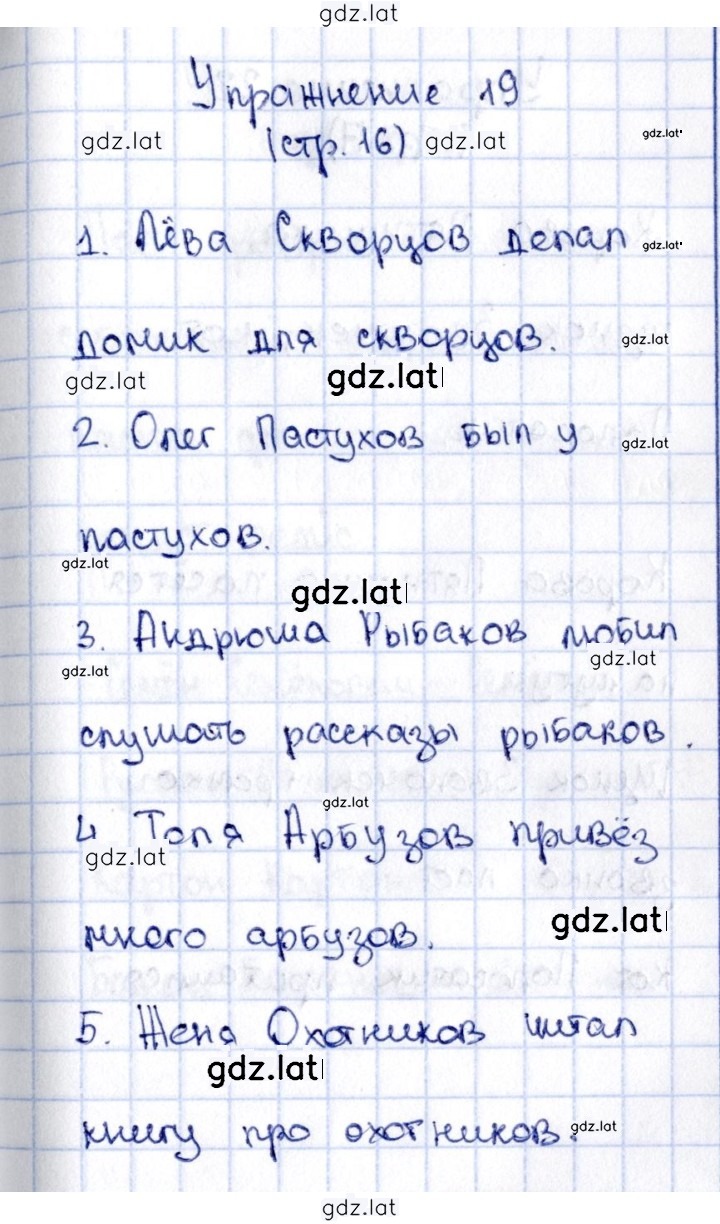 gdz.lat
Упражнение 19
gdz.lat (стр. 16) gdz.lat gdz.lat
1. Лёва Скворцов делал gdz.lat
домик для скворцов. gdz.lat
gdz.lat gdz.lat
2. Олег Пастухов был у gdz.lat
пастухов.
gdz.lat gdz.lat
3. Андрюша Рыбаков любил
gdz.lat gdz.lat
слушать рассказы рыбаков.
gdz.lat
4 Толя Арбузов привёз
gdz.lat
много арбузов. gdz.lat
5. Женя Охотников читал
gdz.lat
книгу про охотников. gdz.lat
gdz.lat